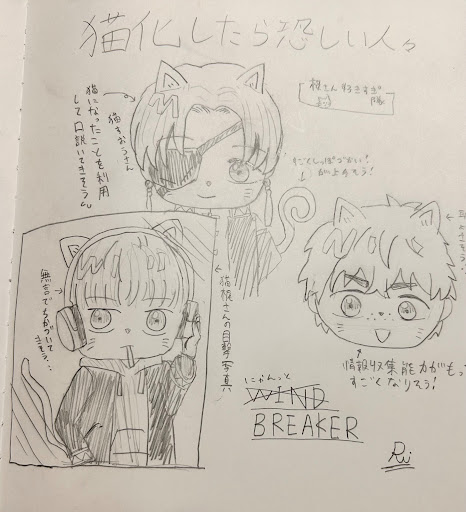 猫化したら恐しい人々
猫すおうさん
猫になったことを利用
して口説いてきそう。
桜さん好きすぎ
隊
すごくしっぽづかい!
が上手そう!
無言でちかづいて
きそう…
猫梶さんの目撃写真
情報収集能力がもっと
すごくなりそう!
にゃんっと
WIND
BREAKER
Ri